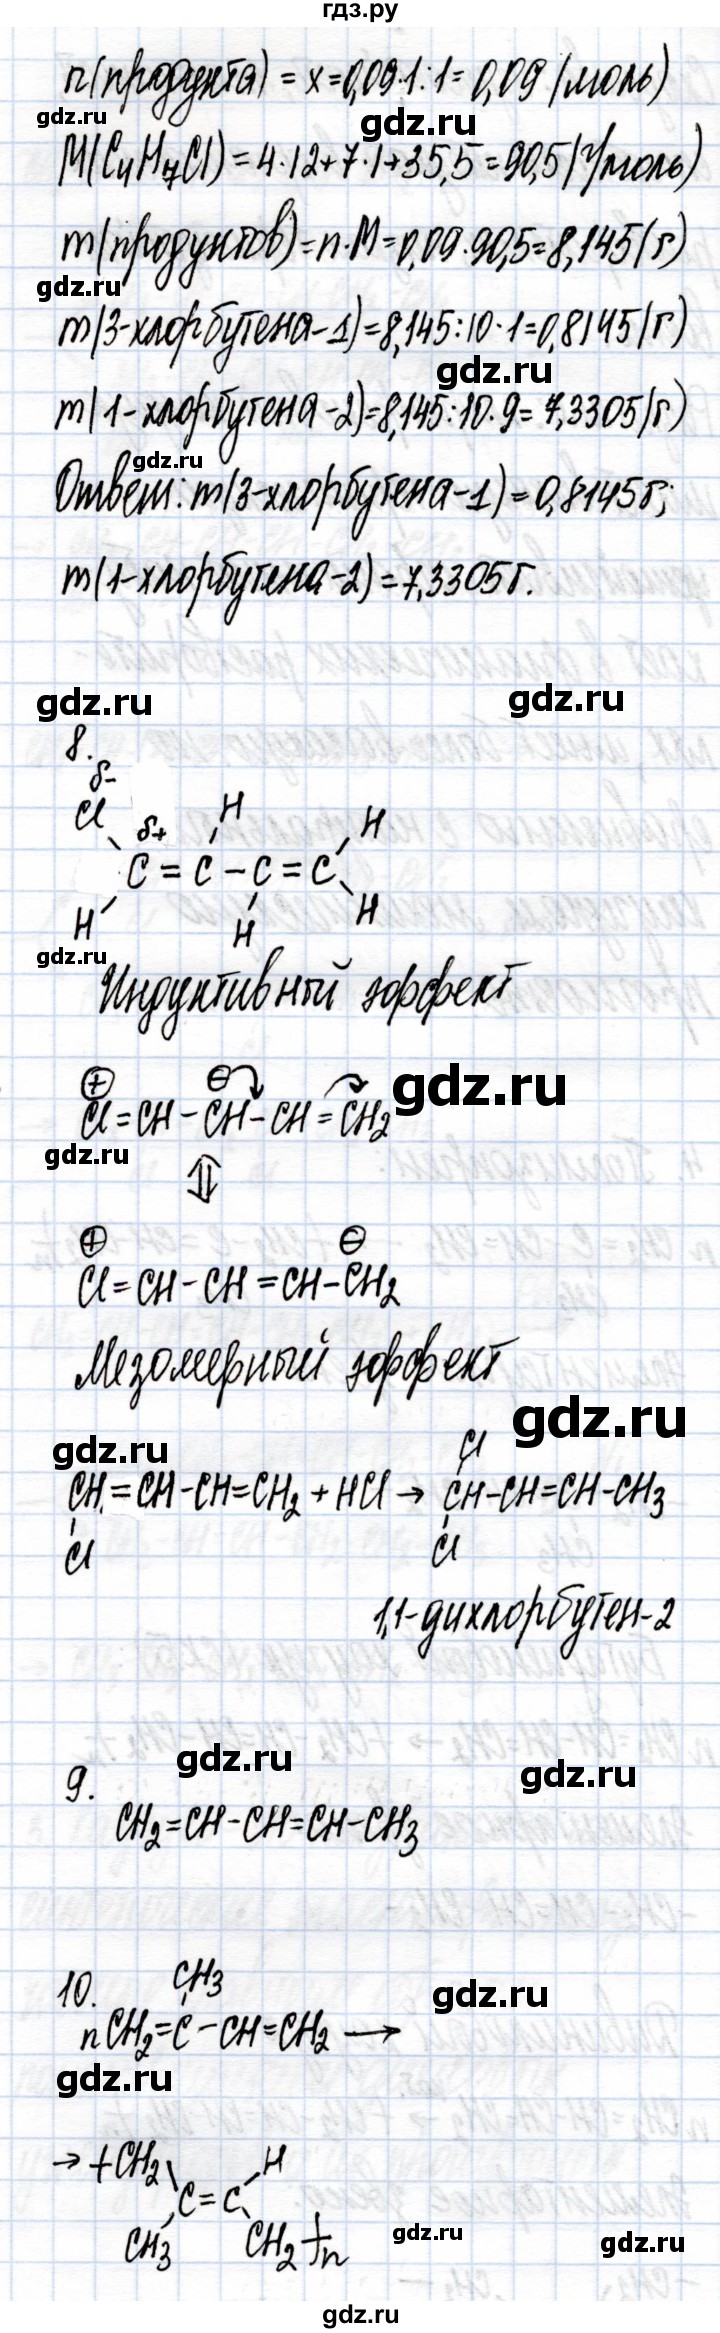 гдз.ру
n(продукта) = x = 0,09·1:1 = 0,09 (моль)
gdz.ru
gdz.ru
M(C₄H₇Cl) = 4·12+7·1+35,5 = 90,5 (г/моль)
m(продуктов) = n·M = 0,09·90,5 = 8,145 (г)
gdz.ru
m(3-хлорбутена-1) = 8,145:10·1 = 0,8145 (г)
gdz.ru
m(1-хлорбутена-2) = 8,145:10·9 = 7,3305 (г)
gdz.ru
Ответ: m(3-хлорбутена-1) = 0,8145 г;
m(1-хлорбутена-2) = 7,3305 г.
gdz.ru
gdz.ru
8.
δ-
Cl H H
δ+
C = C - C = C
H H H
gdz.ru
Индуктивный эффект
gdz.ru
⊕ ⊖
Cl=CH-CH-CH=CH₂
gdz.ru
⇅
⊕ ⊖
Cl=CH-CH=CH-CH₂
Мезомерный эффект
gdz.ru
gdz.ru
Cl
CH=CH-CH=CH₂ + HCl → CH-CH=CH-CH₃
Cl Cl
1,1-дихлорбутен-2
gdz.ru
gdz.ru
9.
CH₂=CH-CH=CH-CH₃
10.
CH₃
gdz.ru
nCH₂=C-CH=CH₂ →
gdz.ru
→ +CH₂ H
C=C
CH₃ CH₂+n
gdz.ru
gdz.ru
gdz.ru